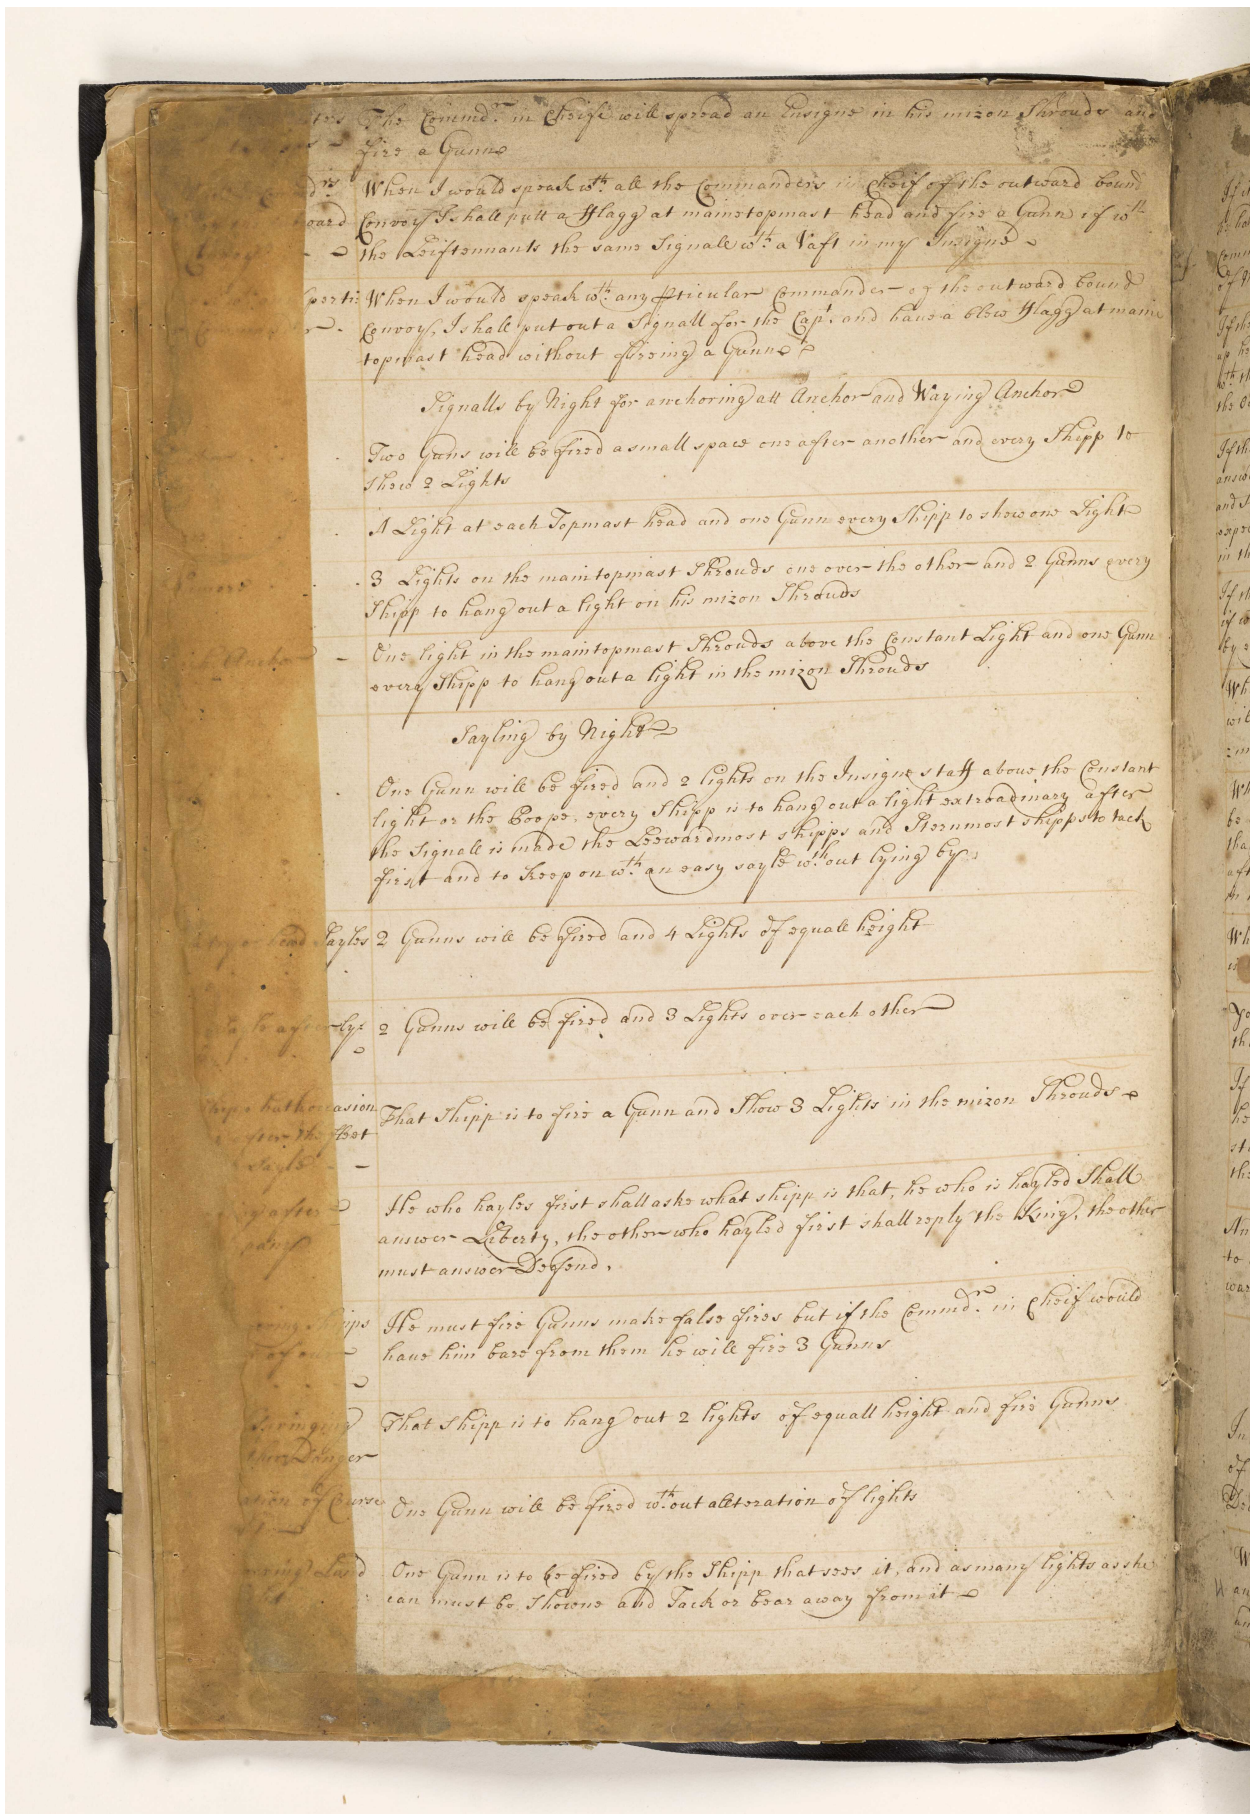 The Commdr. in Cheife will spread an Ensigne in his mizon Shrouds and
fire a Gunne
When I would speak wth. all the Commanders in Cheif of the outward bound
Convoy I shall putt a Flagg at maintopmast head and fire a Gunn if wth
the Leiftennants the same Signall wth. a Vaft in my Insigne
When I would speak wth. any pticular Commander of the outward bound
Convoy, I shall put out a Signall for the Capt. and have a blew Flagg at maine
topmast head without fireing a Gunne
Signalls by Night for anchoring att Anchor and Waying Anchor
Two Guns will be fired a small space one after another and every Shipp to
shew 2 Lights
A Light at each Topmast head and one Gunn every Shipp to shew one Light
3 Lights on the maintopmast Shrouds one over the other and 2 Gunns every
Shipp to hang out a light on his mizon Shrouds
Anchor
One light in the maintopmast Shrouds above the Constant Light and one Gunn
every Shipp to hang out a light in the mizon Shrouds
Sayling by Night
One Gunn will be fired and 2 lights on the Insigne staff above the Constant
light or the Poope, every Shipp is to hang out a light extraodinary after
the Signall is made the Leewardmost shipps and Sternmost shipps to tack
first and to Keep on wth. an easy sayle wth.out lying by
head Sayles 2 Gunns will be fired and 4 Lights of equall height
2 Gunns will be fired and 3 Lights over each other
hath occasion
That Shipp is to fire a Gunn and Show 3 Lights in the mizon Shrouds
the fleet
Sayle
after
He who hayles first shall aske what shipp is that, he who is hayled Shall
answer Liberty, the other who hayled first shall reply the King, the other
must answer Defend.
He must fire Gunns make false fires but if the Commdr. in Cheif would
have him bare from them he will fire 3 Gunns
That Shipp is to hang out 2 lights of equall height and fire Gunns
Danger
of Course
One Gunn will be fired wth.out alteration of lights
One Gunn is to be fired by the Shipp that sees it, and as many lights as she
can must be Showne and Tack or bear away from it